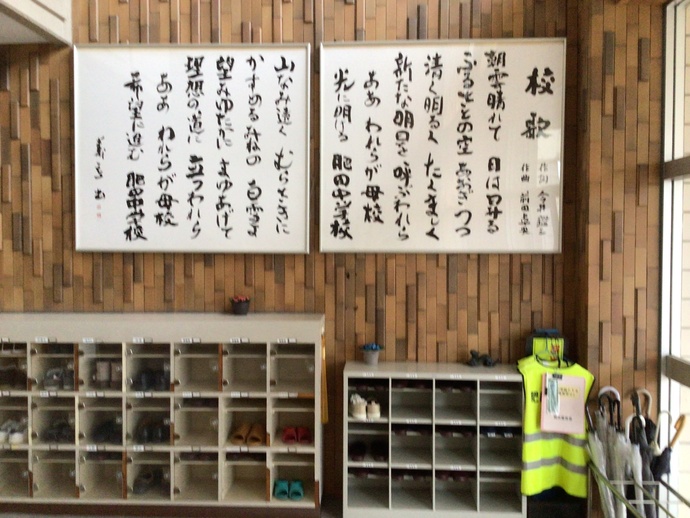 校歌
作曲
朝雲晴れて 日は昇る
ふるさとの空 あおぎつつ
清く明るく たくましく
新たな明日を 呼ぶわれら
ああ われらが母校
光に明ける 肥田中学校
山なみ遠く むらさきに
かすめるみねの 白雲よ
望みゆたかに まゆあげて
理想の道に 立つわれら
ああ われらが母校
希望に進む 肥田中学校